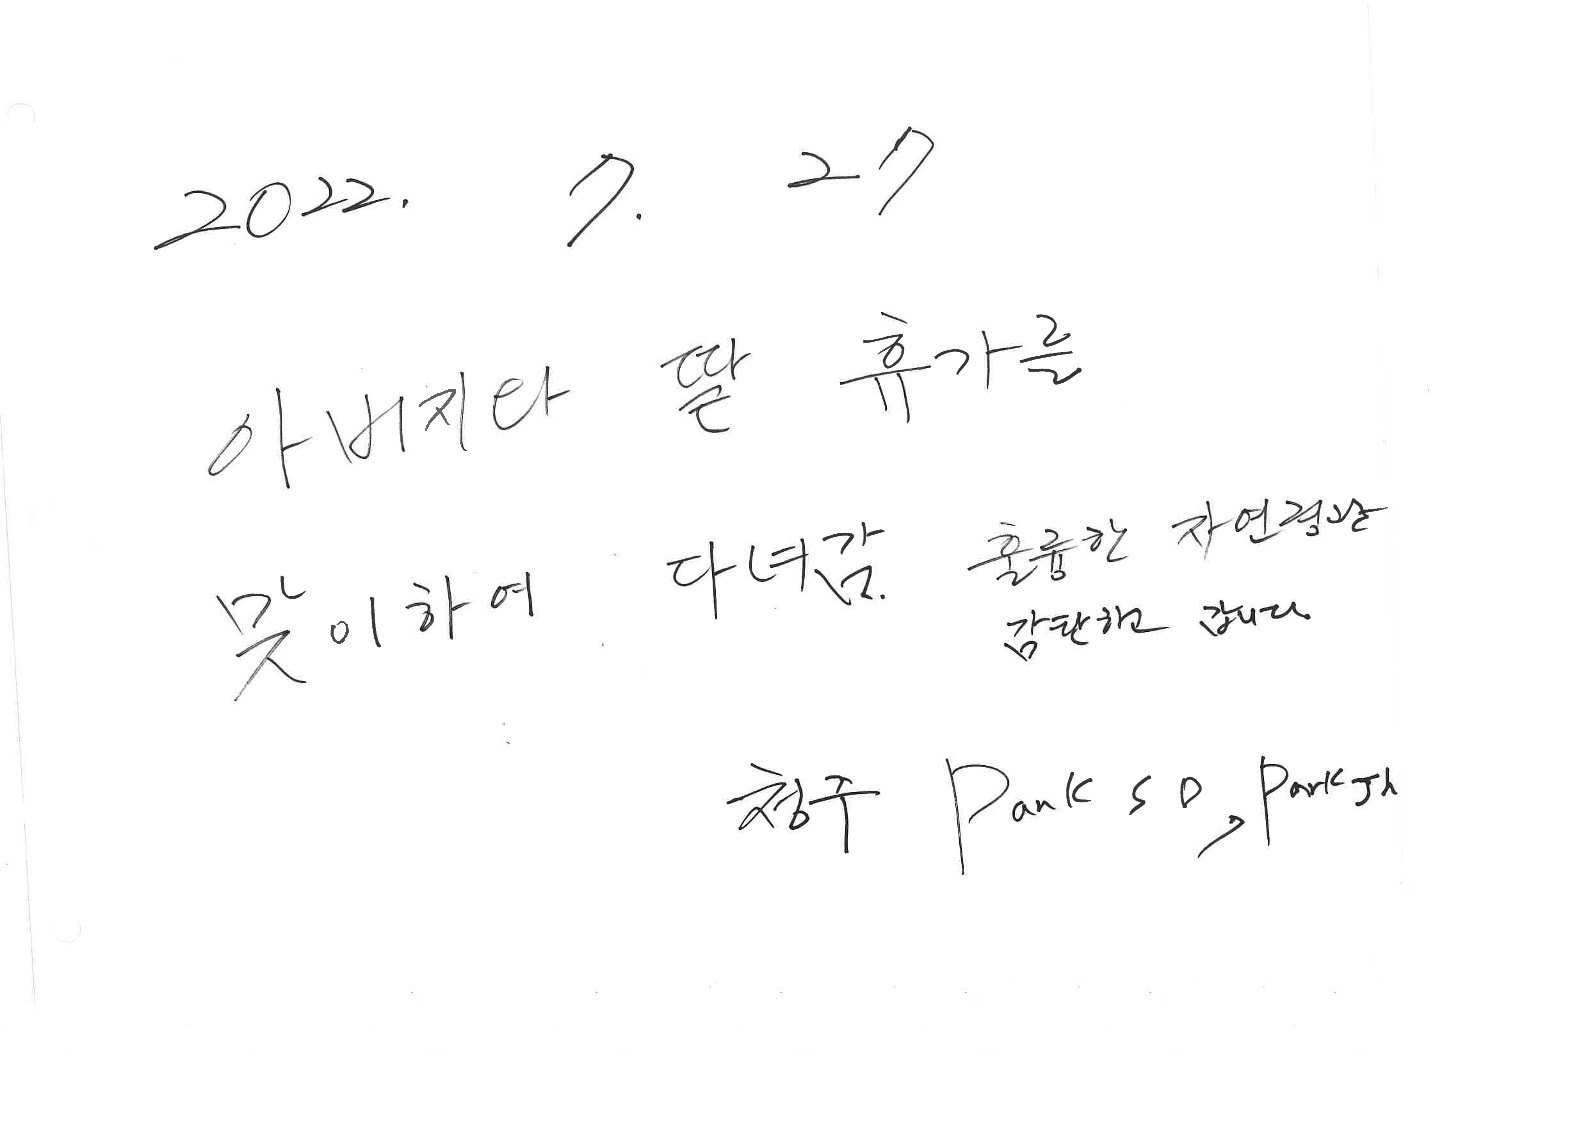 2022. 7. 27
아버지와 딸 휴가를
맞이하여 다녀감. 훌륭한 자연경관
감탄하고 갑니다.
청주 Park S D, Park Jh